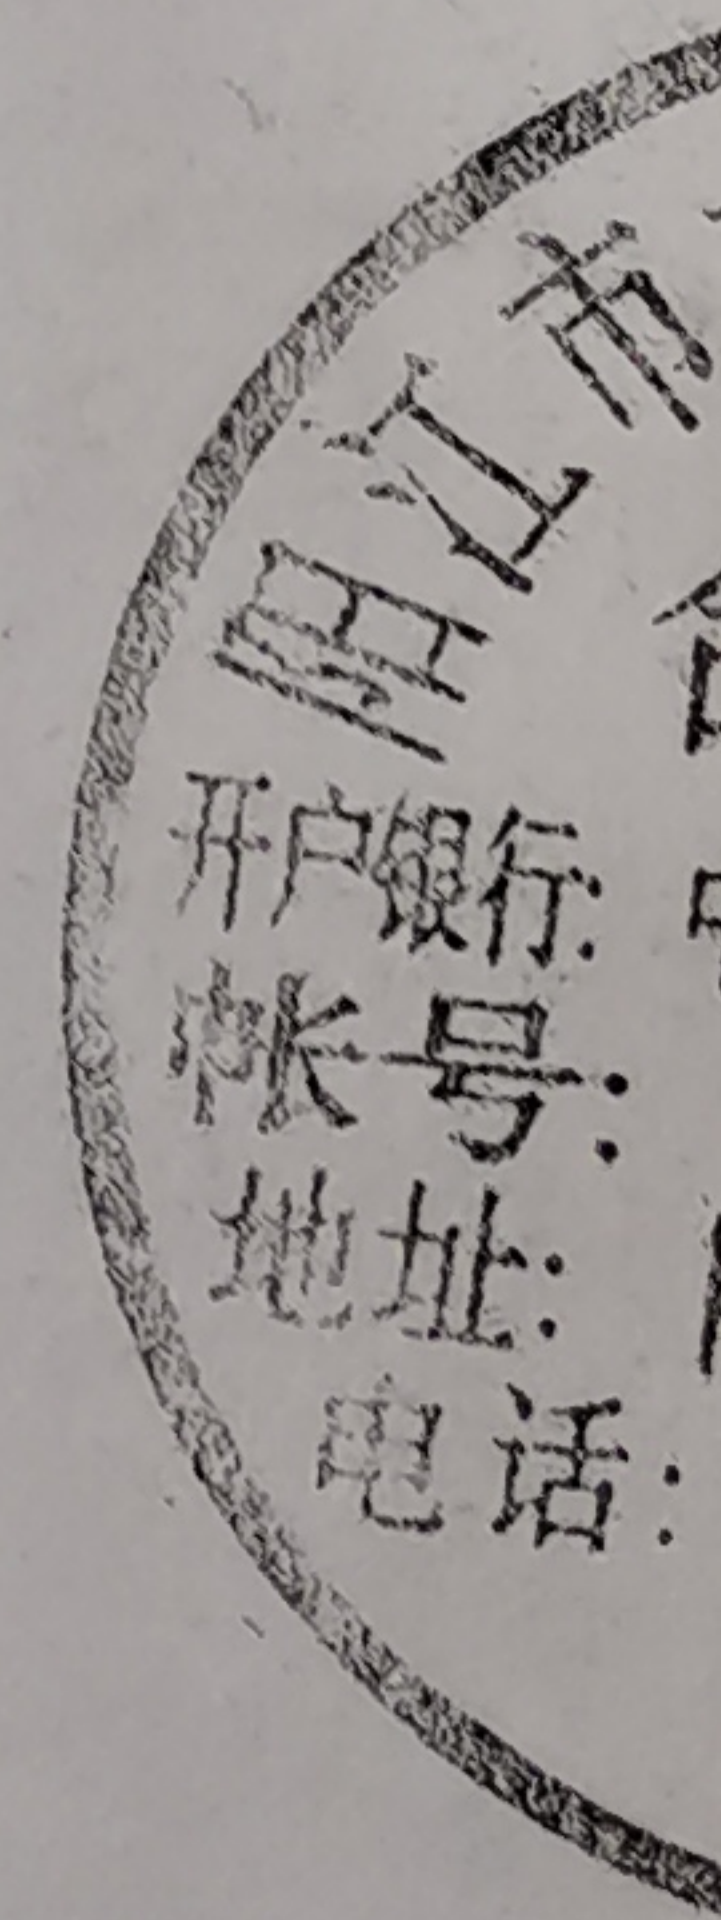 阳江市
开户银行:
帐号:
地址:
电话: